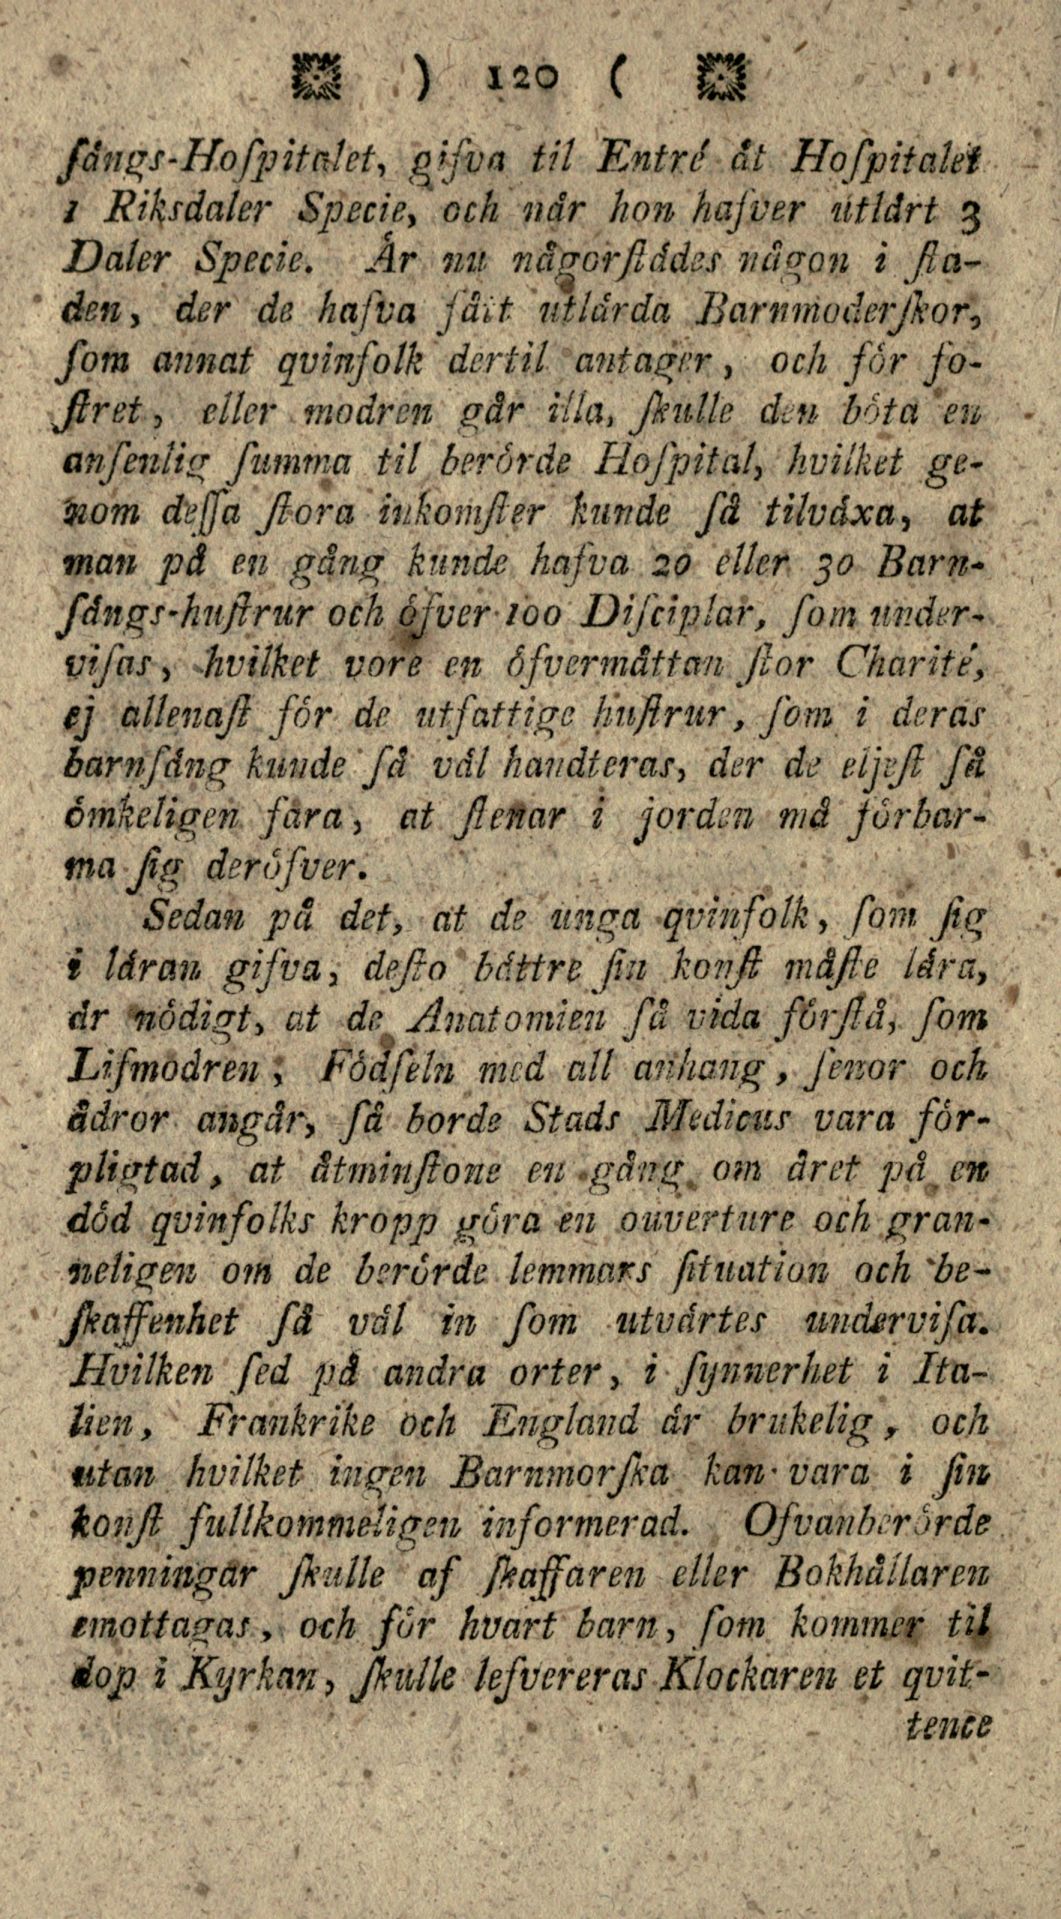 ) 120 (
ſängs-Hoſpitalet, gifva til Entré åt Hoſpitalet
1 Riksdaler Specie, och når hon hafver utlärt 3
Daler Specie. Är nu någorſtädes någon i ſta-
den, der de hafva fått utlärda Barnmoderſkor,
ſom annat qvinfolk dertil antager, och för fo-
ſtret, eller modren går illa, ſkulle den böta en
anſenlig ſumma til berörde Hoſpital, hvilket ge-
nom deſſa ſtora inkomſter kunde ſå tilväxa, at
man på en gång kunde hafva 20 eller 30 Barn-
ſängs-huſtrur och öfver 100 Diſciplar, ſom under-
viſas, hvilket vore en öfvermåttan ſtor Charité,
ej allenaſt för de utfattige huſtrur, ſom i deras
barnſäng kunde ſå väl handteras, der de eljeſt ſå
ömkeligen fara, at ſtenar i jorden må förbar-
ma ſig deröfver.
Sedan på det, at de unga qvinfolk, ſom ſig
i läran gifva, deſto bättre ſin konſt måſte lära,
är nödigt, at de Anatomien ſå vida förſtå, ſom
Lifmodren, Födſeln med all anhang, ſenor och
ådror angår, ſå borde Stads Medicus vara för-
pligtad, at åtminſtone en gång om året på en
död qvinfolks kropp göra en ouverture och gran-
neligen om de berörde lemmars ſituation och be-
ſkaffenhet ſå väl in ſom utvärtes underviſa.
Hvilken ſed på andra orter, i ſynnerhet i Ita-
lien, Frankrike och England är brukelig, och
utan hvilket ingen Barnmorſka kan vara i ſin
konſt fullkommeligen informerad. Ofvanberörde
penningar ſkulle af ſkaffaren eller Bokhållaren
emottagas, och för hvart barn, ſom kommer til
dop i Kyrkan, ſkulle lefvereras Klockaren et qvit-
tence